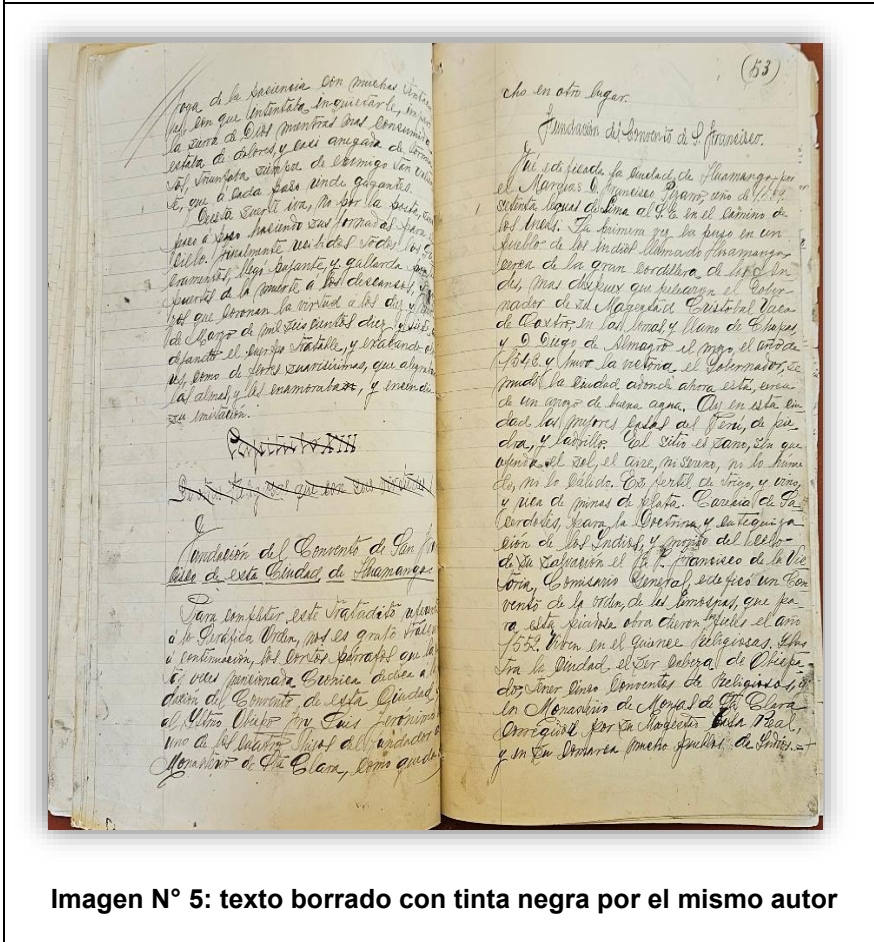 roga de la paciencia con muchas
con que intentaba inquietarle,
la sierva de Dios mientras mas consumida
estaba de dolores, y casi anegada de tormen
tos, triunfaba siempre de enemigo tan
que á cada paso rinde gigantes.
De esta suerte iva, no por la posta,
paso á paso haciendo sus jornadas para
cielo. Finalmente recibidos todos los
cramentos, llegó pujante y gallarda
puertas de la muerte a los descansos,
que coronan la virtud a los diez y
de Marzo de mil seis cientos diez y siete
dejando el cuerpo tratable, y exalando
como de flores suavisimas, que alegraba
las almas, y las enamoraba, y encendia
su imitación.
Capitulo XIII
De otras Religiosas que con sus
Fundación del Convento de San Fran
cisco de esta Ciudad de Huamanga
Para completar este tratadito
á la Seráfica Orden, nos es grato
á continuación, los cortos párrafos que la
veces mencionada Crónica dedica a
dación del Convento de esta Ciudad y
al Iltmo Obispo Fray Luis Gerónimo
uno de los cuatro hijos del fundador
Monasterio de Sta Clara, como queda
(53)
cho en otro lugar.
Fundación del Convento de S. Francisco.
Fué edificada la Ciudad de Huamanga por
el Marques D. Francisco Pizarro, año de
setenta leguas de Lima al en el camino de
los Incas. La primera vez la puso en un
pueblo de los indios llamado Huamanga
cerca de la gran cordillera de los An
des, mas despues que pelearon el Gober
nador de su Magestad Cristóbal Vaca
de Castro, en las lomas y llano de Chupas,
y D. Diego de Almagro el mozo, el año de
y huvo la victoria el Gobernador, se
mudó la Ciudad adonde ahora está, cerca
de un arroyo de buena agua. Ay en esta ciu
dad las mejores casas del Perú, de pie
dra, y ladrillo. El sitio es sano, sin que
ofenda el sol, el aire, ni sereno, ni lo húme
do, ni lo cálido. Es fertil de trigo, y vino,
y rica de minas de plata. Carecia de Sa
cerdotes, para la Doctrina y catequiza
ción de los Indios, y movido del celo
de su salvacion el R. P. Francisco de la Vic
toria, Comisario General, edificó un Con
vento de la orden, de las limosnas, que pa
ra esta piadosa obra dieron los fieles el año
1552. Viven en el quince Religiosas. Ilus
tra la Ciudad el ser cabeza de Obispa
do, tener cinco Conventos de Religiosos,
un Monasterio de Monjas de Sta Clara
Corregidor por su Magestad Casa Real,
y en su comarca mucho pueblos de Indios.=
Imagen N° 5: texto borrado con tinta negra por el mismo autor